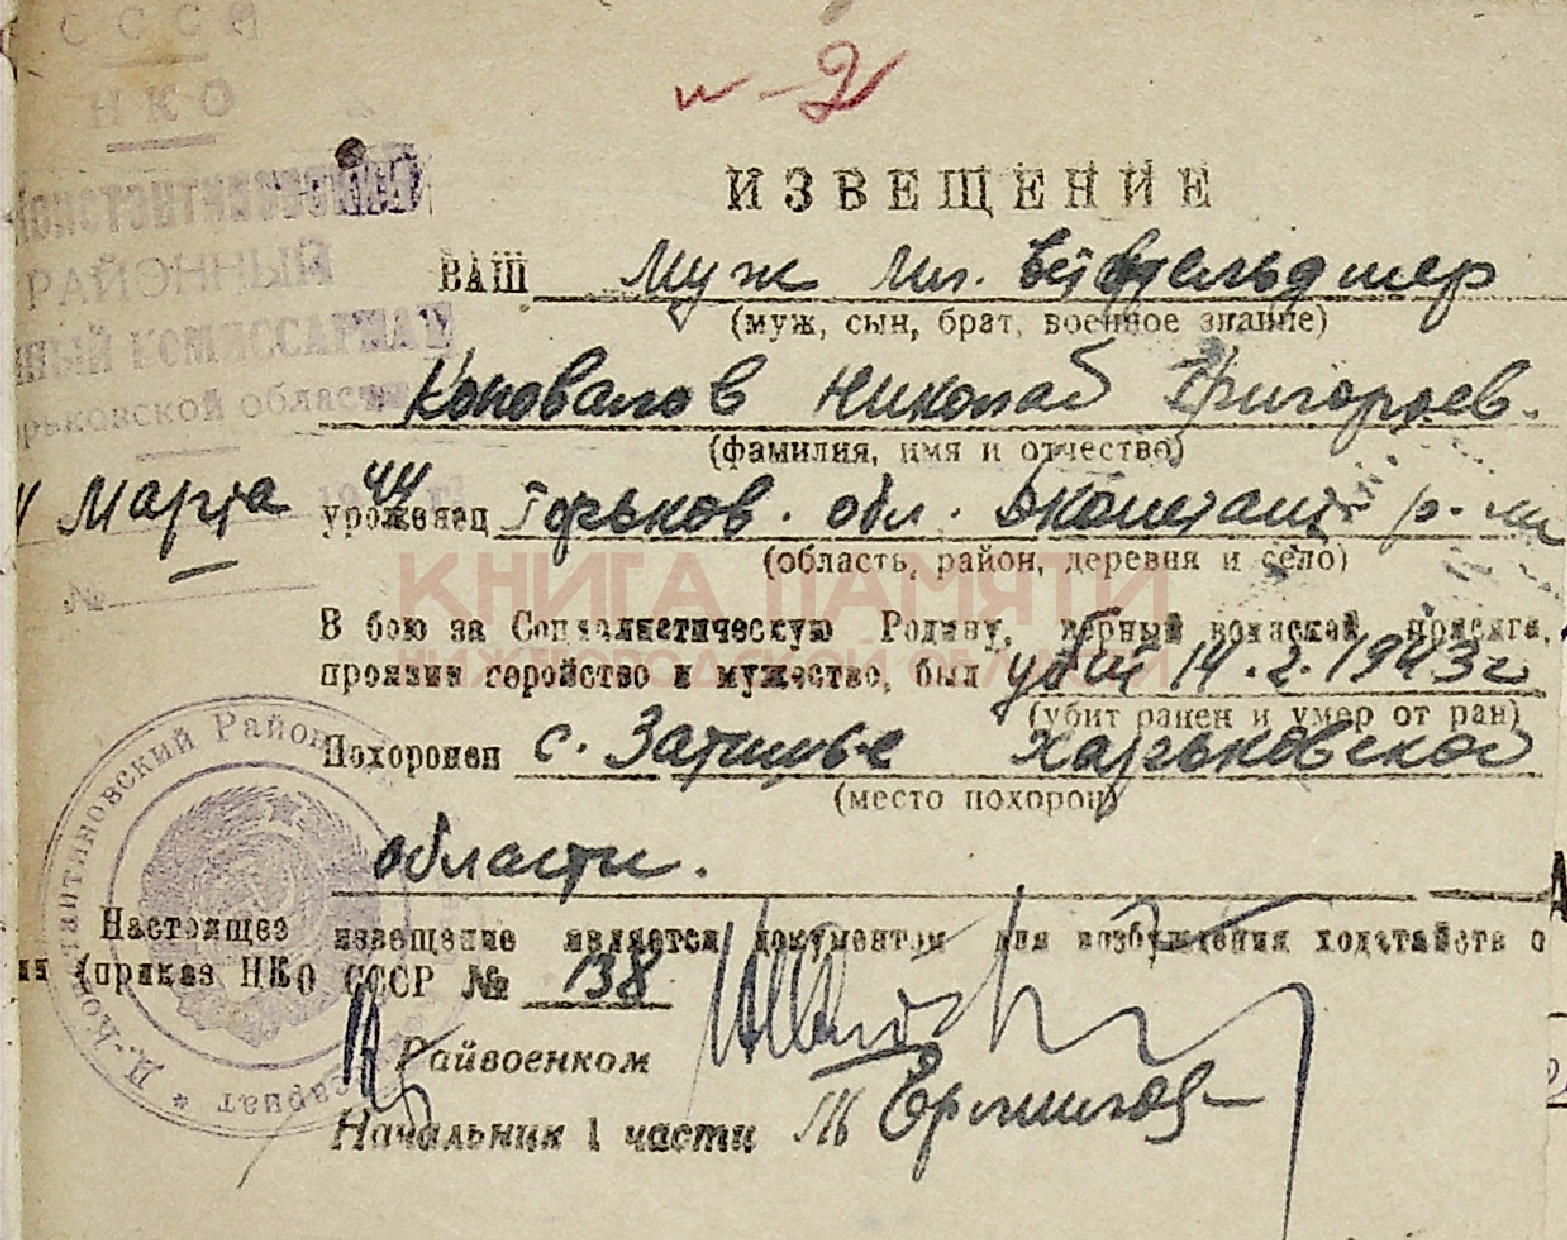 СССР
НКО
КОНСТАНТИНОВСКИЙ
РАЙОННЫЙ
ННЫЙ КОМИССАРИАТ
рьковской области
Марта 44
№
и-2
ИЗВЕЩЕНИЕ
ВАШ муж мл. вет фельдшер
(муж, сын, брат, военное звание)
Коновалов Николай Григорьев.
(фамилия, имя и отчество)
уроженец Горьков. обл. Дконстант р-н
(область, район, деревня и село)
КНИГА ПАМЯТИ
НИЖЕГОРОДСКОЙ ОБЛАСТИ
В бою за Социалистическую Родину, верный воинской присяге,
проявив геройство и мужество, был убит 14.2.1943г
(убит ранен и умер от ран)
Похоронен с. Затишье Харьковской
(место похорон)
области.
Настоящее извещение является документом для возбуждения ходатайств о
ии (приказ НКО СССР № 138
Райвоенком
Начальник 1 части
Д.-Константиновский Район
сариат *